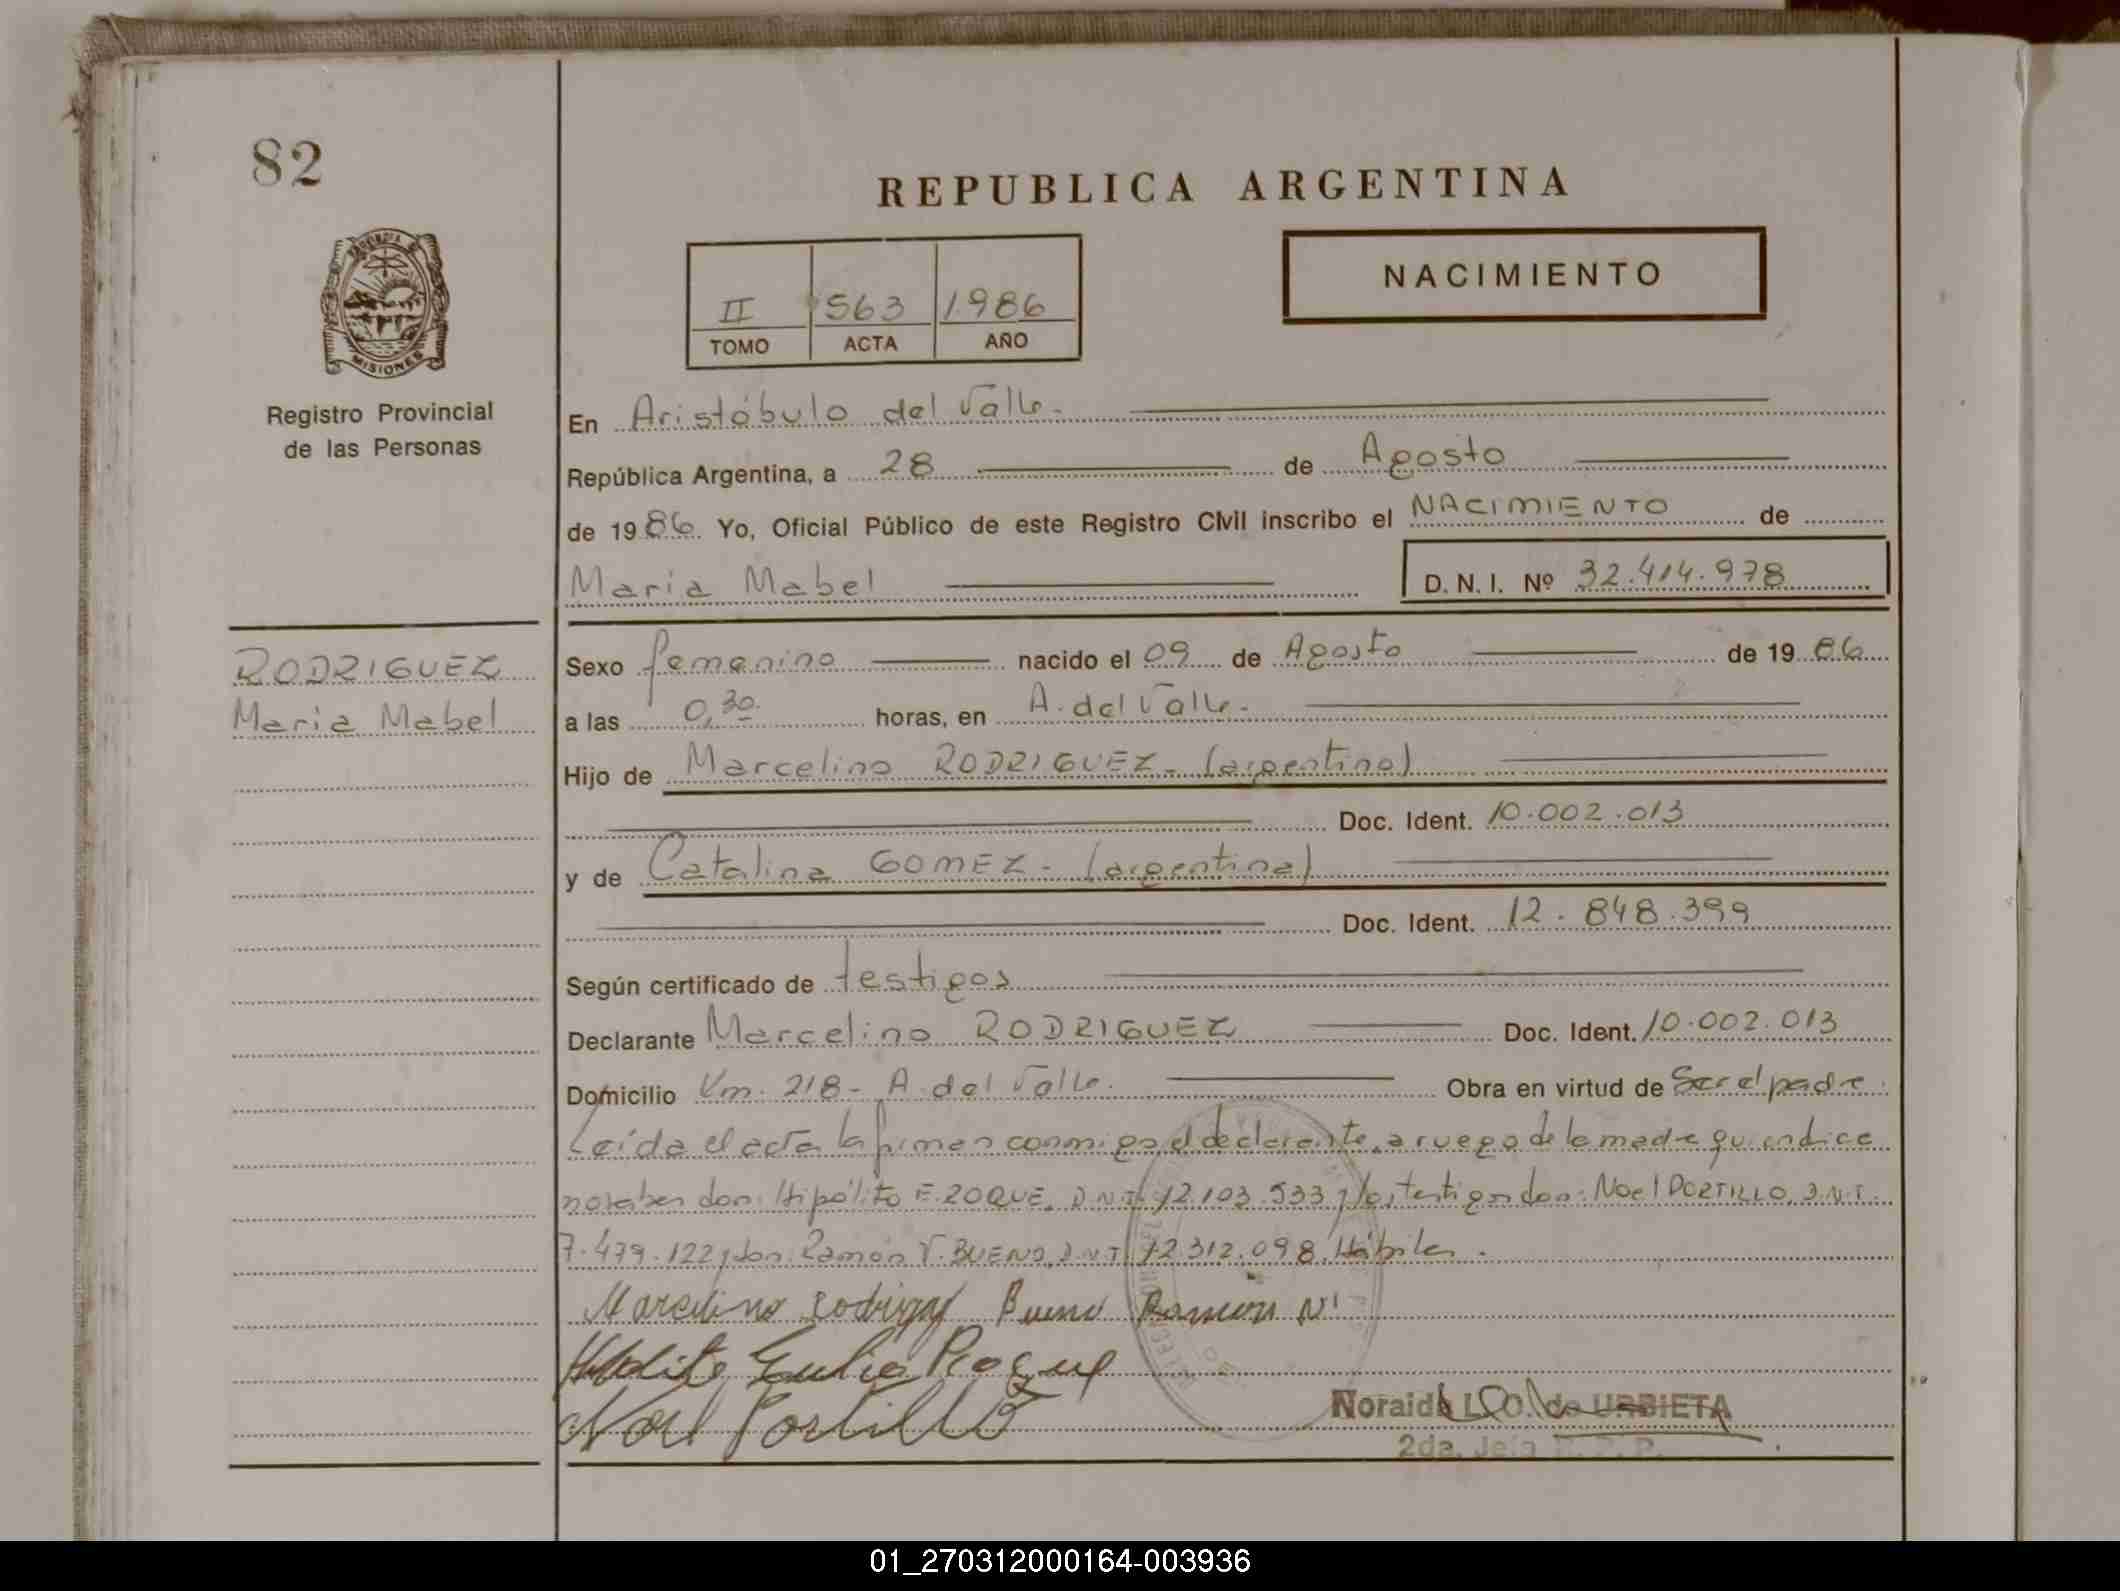 82
REPUBLICA ARGENTINA
NACIMIENTO
II 563 1.986
TOMO ACTA AÑO
PROVINCIA DE MISIONES
Registro Provincial
de las Personas
En Aristóbulo del Valle.
República Argentina, a 28 de Agosto
de 1986. Yo, Oficial Público de este Registro Civil inscribo el NACIMIENTO de
Maria Mabel D. N. I. Nº 32.414.978
RODRIGUEZ
Maria Mabel
Sexo femenino nacido el 09 de Agosto de 1986
a las 0,30 horas, en A. del Valle.
Hijo de Marcelino RODRIGUEZ - (argentino)
Doc. Ident. 10.002.013
y de Catalina GOMEZ - (argentina)
Doc. Ident. 12.848.399
Según certificado de testigos
Declarante Marcelino RODRIGUEZ Doc. Ident. 10.002.013
Domicilio Km. 218 - A. del Valle. Obra en virtud de Ser el padre.
Leída el acta la firman conmigo, el declarante, a ruego de la madre quien dice
no saber don: Hipólito E. ROQUE, D.N.I. 12.103.533 y los testigos don: Noel PORTILLO, D.N.I.
7.479.122 y don: Ramón V. BUENO, D.N.I. 12.312.098. Hábiles.
Marcelino Rodriguez Bueno Ramon
Hipolito Eulio Roque
Noel Portillo
Noraida L. O. de URBIETA
2da. Jefa R. P. P.
01_270312000164-003936